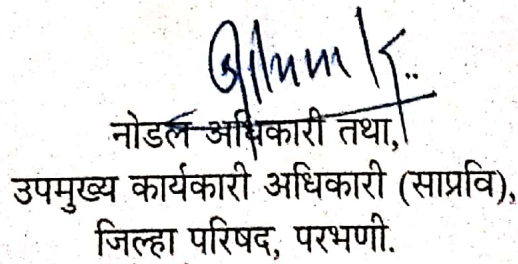 नोडल अधिकारी तथा,
उपमुख्य कार्यकारी अधिकारी (साप्रवि),
जिल्हा परिषद, परभणी.